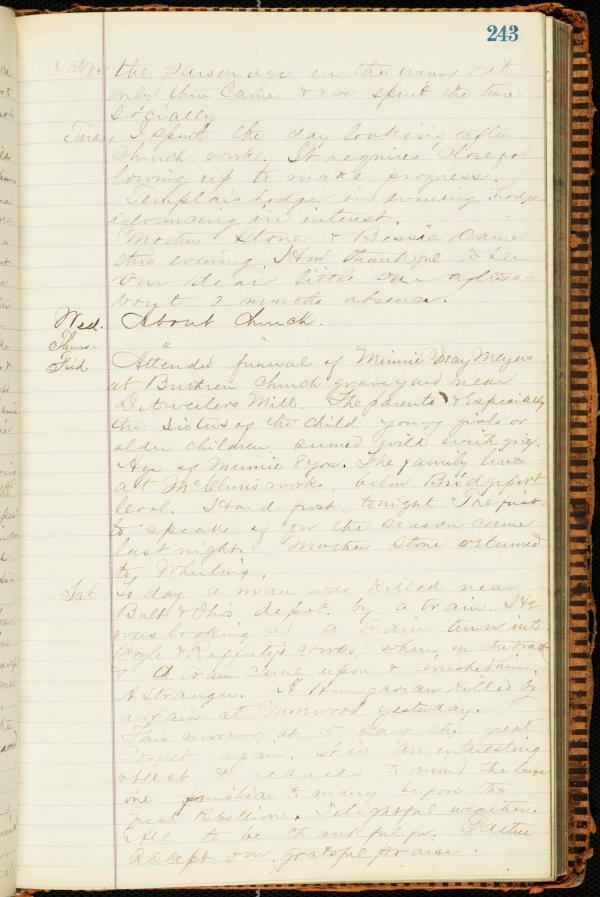 243
the parsonage in the evening but
only three came & we spent the time
socially
Tues. I spent the day looking after
Church work. It requires close fol
lowing up to make progress.
Templars Lodge in evening. Lodge
advancing in interest.
Mother Stone & Bessie came
this evening. I am thankful to see
our dear little one after
2 months absence.
Wed. About Church.
Thurs-
Frid
Attended funeral of Minnie May Meyers
at Church graveyard near
Detweilers Mill. The parents & Especially
the Sisters of the Child young girls or
older children seemed wild with grief.
Age of Minnie 8 yrs. The family lives
at works, below Bridgeport
level. Hard frost, tonight. The first
to speak of for the season came
last night. Mother Stone returned
to Wheeling.
Sat. To day a man was killed near
Balt & Ohio depot by a train. He
was looking at a train turn into
Boyle & Rafferty's works when on the track
& a train came upon & crushed him.
A stranger. A Hungarian killed by
a train at Morewood yesterday.
This morning at 5 saw the great
Comet again. It is an interesting
object & recalls to mind the large
one familiar to many before the
great Rebellion. Delightful weather.
to be thankful for. Father
accept our grateful praise.